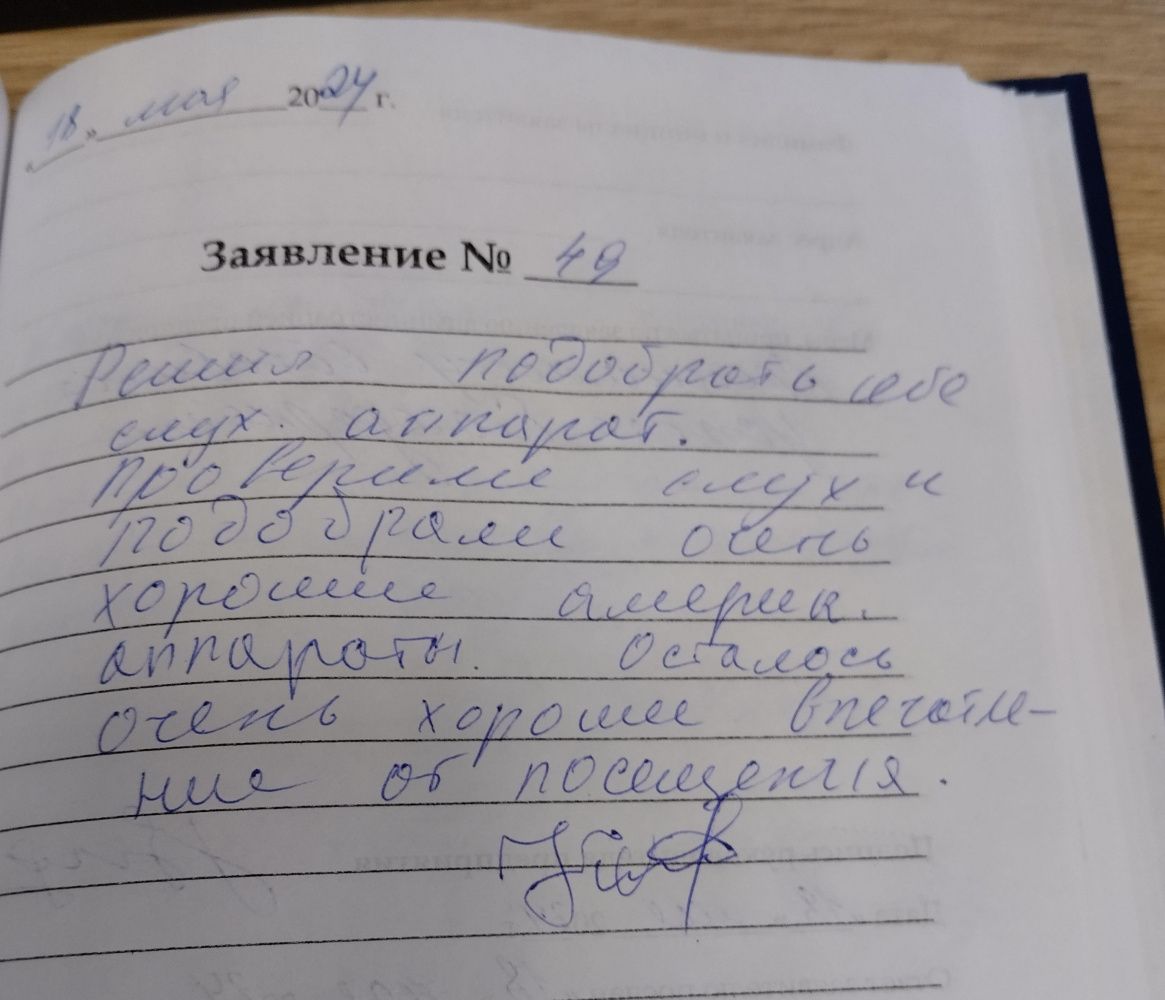 «18» мая 2024 г.
Заявление № 49
Решил подобрать себе
слух. аппарат.
Проверили слух и
подобрали очень
хорошие америк.
аппараты. Осталось
очень хорошее впечатле-
ние от посещения.